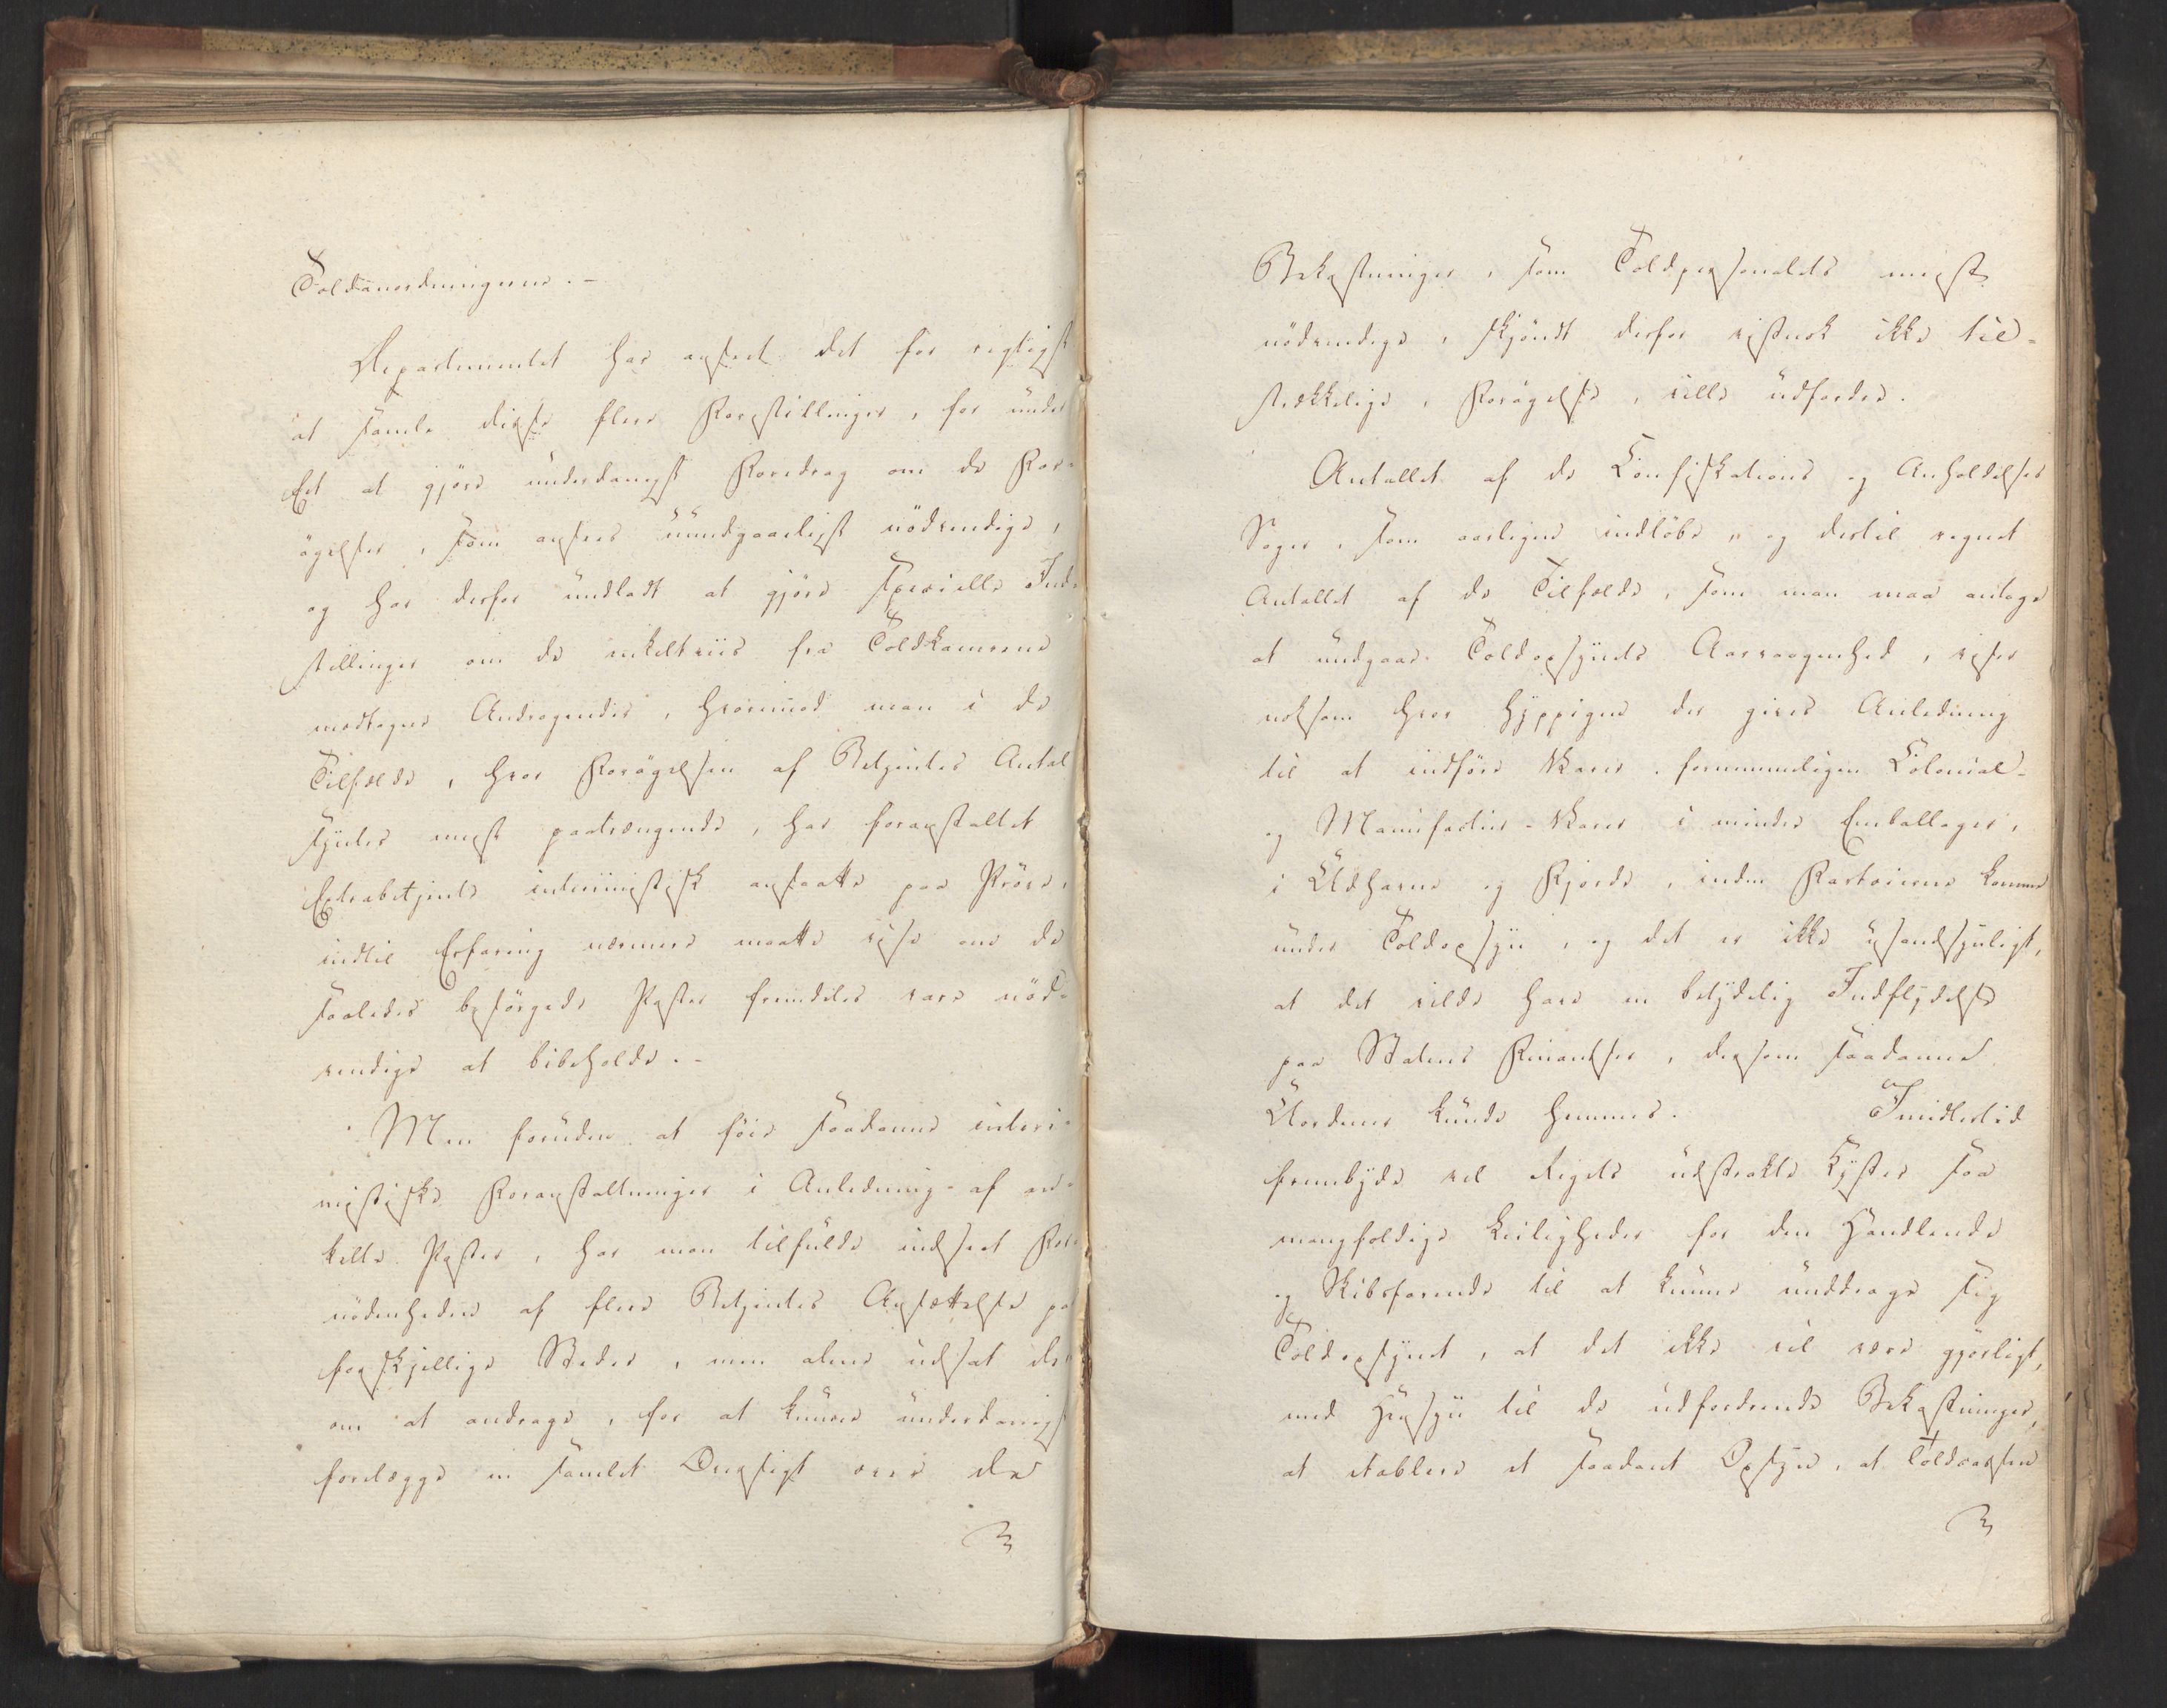 Toldanordningerne. -
Departementet har anseet det for rigtigst
at samle disse flere Forestillinger, for under
Et at gjöre underdanigst Foredrag om de For-
ögelser, som ansees uundgaaeligst nödvendige,
og har derfor undladt at gjöre specielle Ind-
stillinger om de enkeltviis fra Toldkamrene
modtagne Andragender, hvorimod man i de
Tilfælde, hvor Forögelsen af Betjentes Antal
syntes mest paatrængende, har foranstaltet
Extrabetjente interimistisk ansatte paa Pröve,
indtil Erfaring nærmere maatte vise om de
saaledes besörgede Poster fremdeles vare nöd-
vendige at bibeholde. -
Men foruden at föie saadanne interi-
mistiske Foranstaltninger i Anledning af en-
kelte Poster, har man tilfulde indseet For-
nödenheden af flere Betjentes Ansættelse paa
forskjellige Steder, men alene udsat der-
om at andrage, for at kunne underdanigst
forelægge en samlet Oversigt over de
Bekostninger, som Toldpersonalets meest
nödvendige, skjöndt derfor vistnok ikke til-
strækkelige, Forögelse, ville udfordre.
Antallet af de Confiskations og Anholdelses
Sager, som aarligen indlöbe, og dertil regnet
Antallet af de Tilfælde, som man maa antage
at undgaae Toldopsynets Aarvaagenhed, viser
noksom hvor hyppigen der gives Anledning
til at indföre Varer, fornemmeligen Colonial-
og Manufactur-Varer i mindre Emballager,
i Udhavne og Fjorde, inden Fartöierne komme
under Toldopsyn, og det er ikke usandsynligt,
at det vilde have en betydelig Indflydelse
paa Statens Finantser, dersom saadanne
Uordener kunde hemmes. Imidlertid
frembyde vel Rigets udstrakte Kyster saa
mangfoldige Leiligheder for den Handlende
og Skibsfarende til at kunne unddrage sig
Toldopsynet, at det ikke vil være gjörligt,
med Hensyn til de udfordrende Bekostninger,
at etablere et saadant Opsyn, at Toldvæsenet